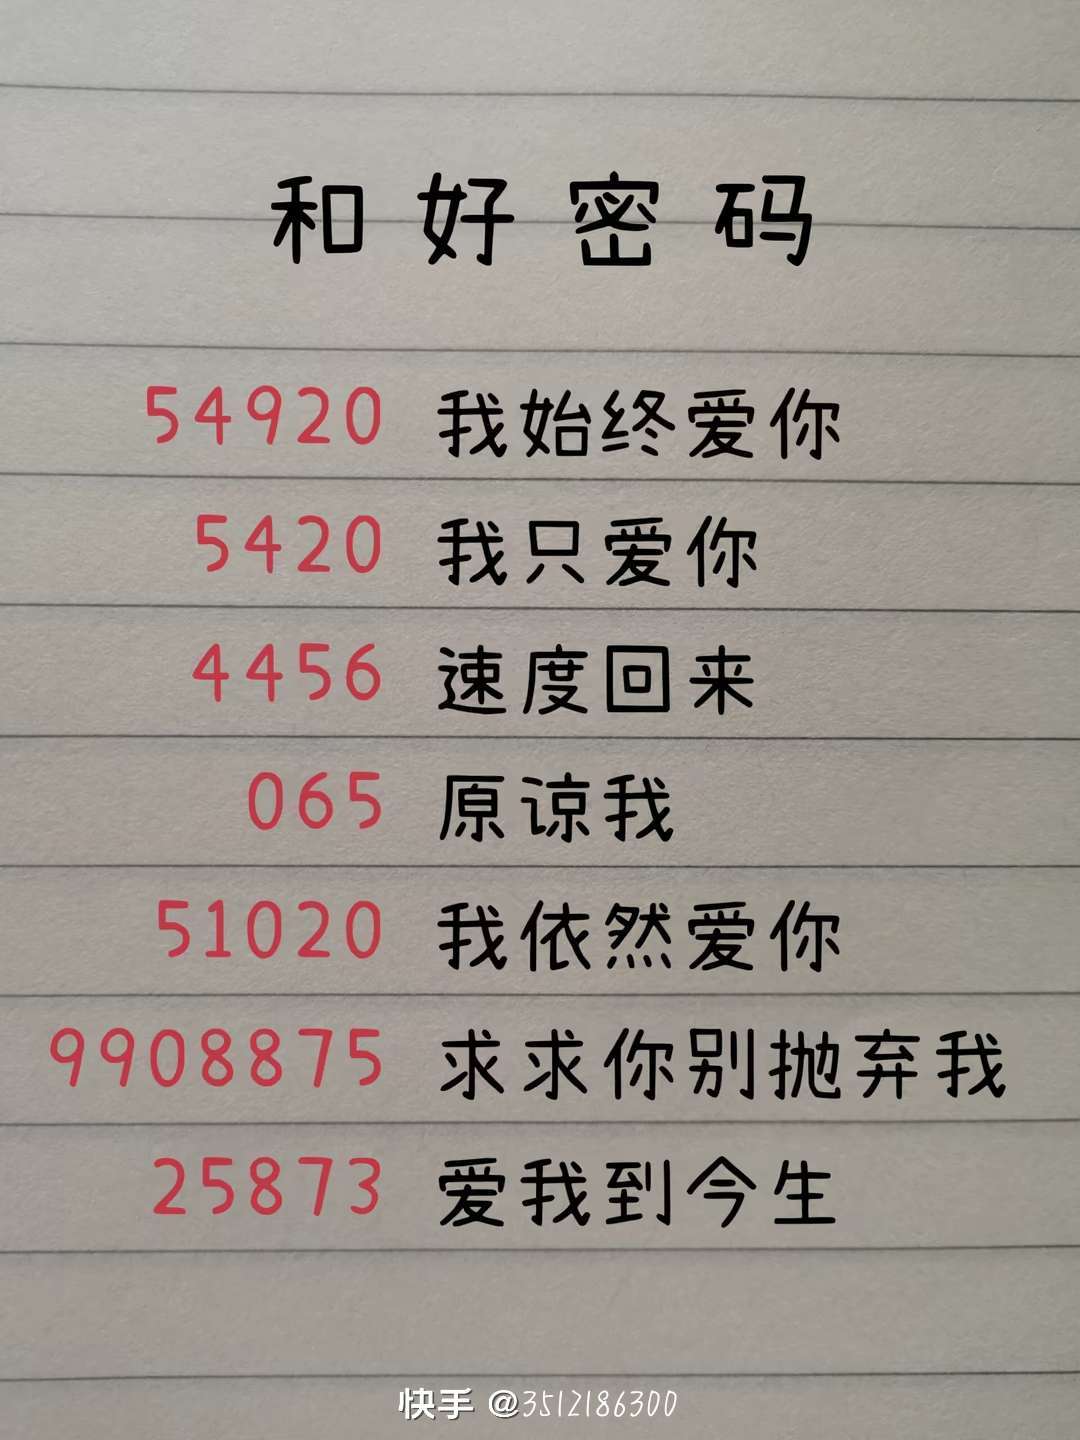 和好密码
54920 我始终爱你
5420 我只爱你
4456 速度回来
065 原谅我
51020 我依然爱你
9908875 求求你别抛弃我
25873 爱我到今生
快手 @3512186300